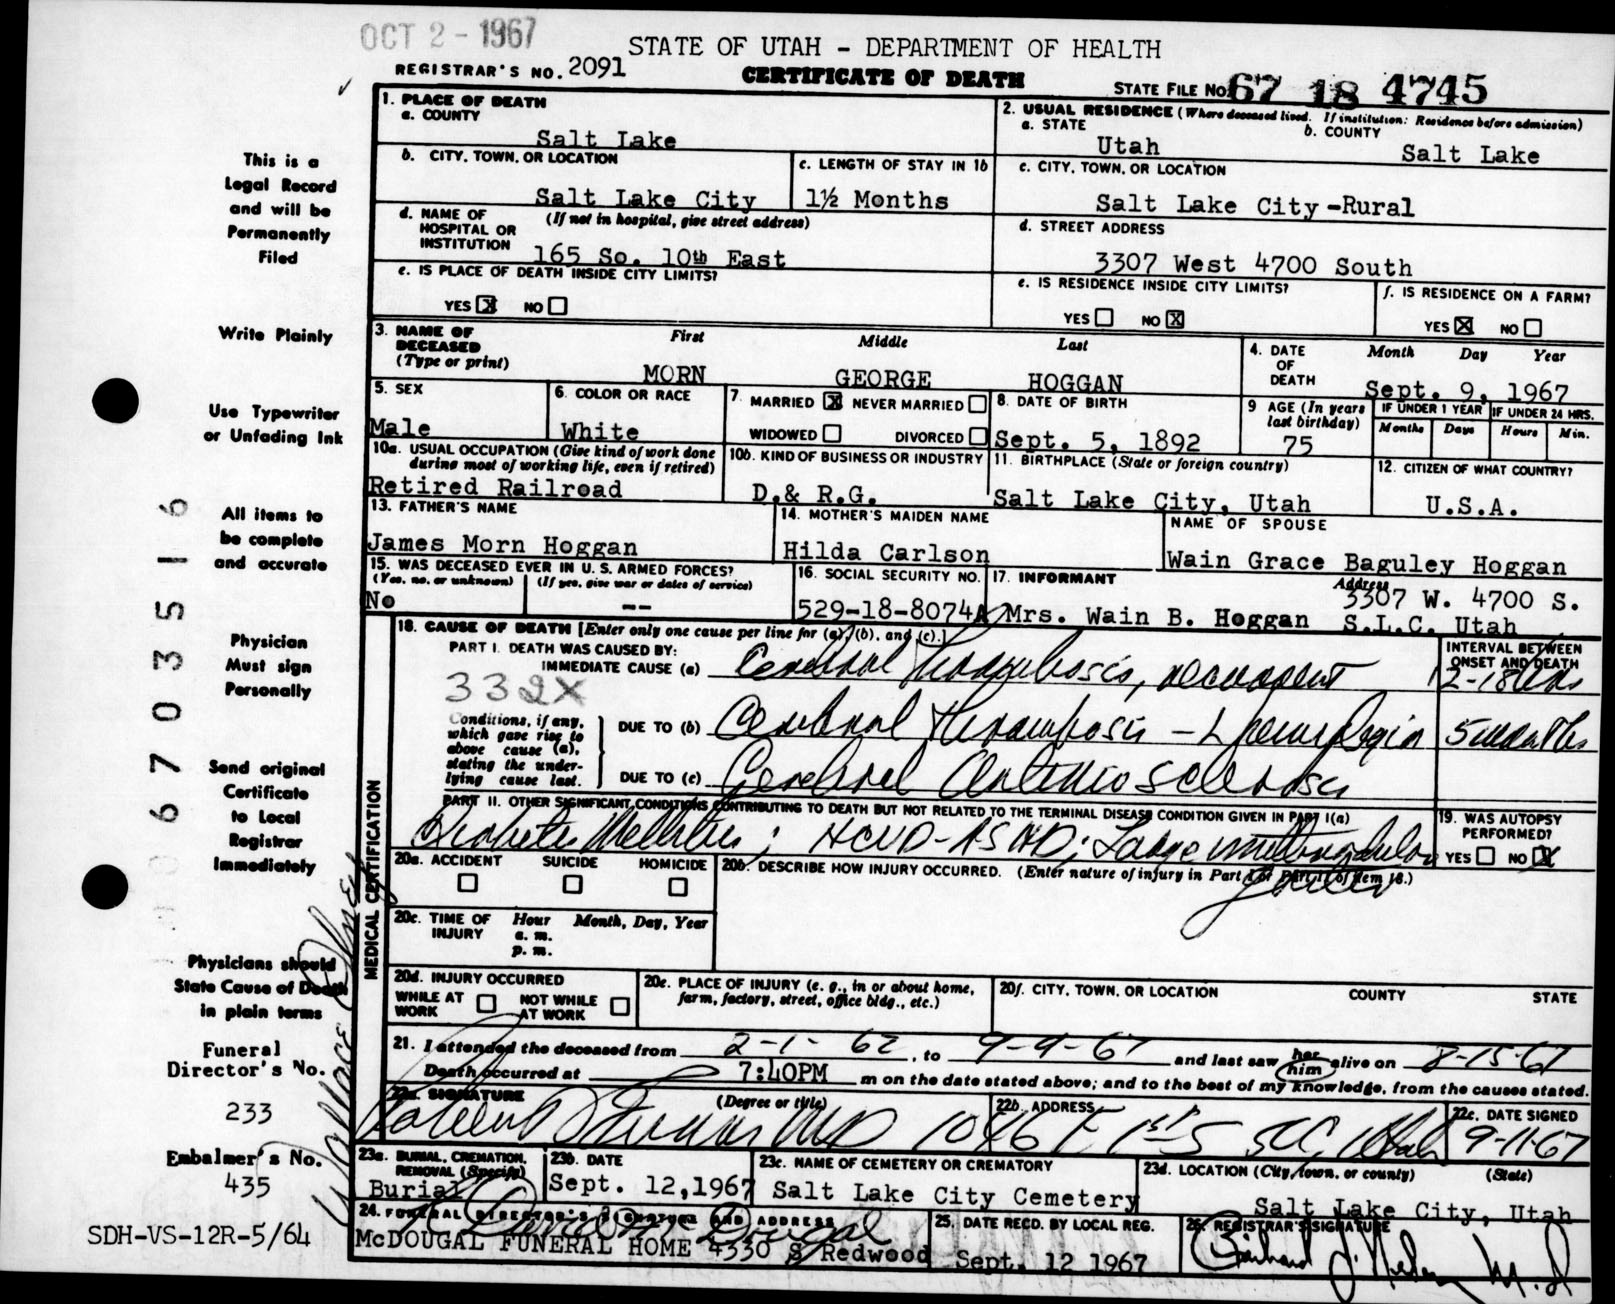 OCT 2 - 1967
STATE OF UTAH - DEPARTMENT OF HEALTH
REGISTRAR'S NO. 2091
CERTIFICATE OF DEATH
STATE FILE NO. 67 18 4745
This is a
Legal Record
and will be
Permanently
Filed
Write Plainly
Use Typewriter
or Unfading Ink
All items to
be complete
and accurate
Physician
Must sign
Personally
Send original
Certificate
to Local
Registrar
Immediately
Physicians should
State Cause of Death
in plain terms
Funeral
Director's No.
233
Embalmer's No.
435
SDH-VS-12R-5/64
67035516
1. PLACE OF DEATH
a. COUNTY
Salt Lake
b. CITY, TOWN, OR LOCATION
Salt Lake City
c. LENGTH OF STAY IN 1b
1½ Months
d. NAME OF HOSPITAL OR INSTITUTION (If not in hospital, give street address)
165 So. 10th East
e. IS PLACE OF DEATH INSIDE CITY LIMITS?
YES X NO
2. USUAL RESIDENCE (Where deceased lived. If institution: Residence before admission)
a. STATE
Utah
b. COUNTY
Salt Lake
c. CITY, TOWN, OR LOCATION
Salt Lake City-Rural
d. STREET ADDRESS
3307 West 4700 South
e. IS RESIDENCE INSIDE CITY LIMITS?
YES NO X
f. IS RESIDENCE ON A FARM?
YES X NO
3. NAME OF DECEASED (Type or print)
First Middle Last
MORN GEORGE HOGGAN
4. DATE OF DEATH
Month Day Year
Sept. 9, 1967
5. SEX
Male
6. COLOR OR RACE
White
7. MARRIED X NEVER MARRIED
WIDOWED DIVORCED
8. DATE OF BIRTH
Sept. 5, 1892
9 AGE (In years last birthday)
75
IF UNDER 1 YEAR
Months Days
IF UNDER 24 HRS.
Hours Min.
10a. USUAL OCCUPATION (Give kind of work done during most of working life, even if retired)
Retired Railroad
10b. KIND OF BUSINESS OR INDUSTRY
D.& R.G.
11. BIRTHPLACE (State or foreign country)
Salt Lake City, Utah
12. CITIZEN OF WHAT COUNTRY?
U.S.A.
13. FATHER'S NAME
James Morn Hoggan
14. MOTHER'S MAIDEN NAME
Hilda Carlson
NAME OF SPOUSE
Wain Grace Baguley Hoggan
15. WAS DECEASED EVER IN U.S. ARMED FORCES?
(Yes, no, or unknown) (If yes, give war or dates of service)
No --
16. SOCIAL SECURITY NO.
529-18-8074A
17. INFORMANT Address
Mrs. Wain B. Hoggan 3307 W. 4700 S.
S.L.C. Utah
MEDICAL CERTIFICATION
18. CAUSE OF DEATH [Enter only one cause per line for (a), (b), and (c).]
PART I. DEATH WAS CAUSED BY:
IMMEDIATE CAUSE (a) Cerebral Thrombosis, recurrent
INTERVAL BETWEEN ONSET AND DEATH
332X
Conditions, if any, which gave rise to above cause (a), stating the underlying cause last.
DUE TO (b) Cerebral Thrombosis - L hemiplegia 5 months
DUE TO (c) Cerebral Arteriosclerosis
PART II. OTHER SIGNIFICANT CONDITIONS CONTRIBUTING TO DEATH BUT NOT RELATED TO THE TERMINAL DISEASE CONDITION GIVEN IN PART I(a)
Diabetes Mellitus; HCVD-ASHD; Large multinodular
goiter
19. WAS AUTOPSY PERFORMED?
YES NO X
20a. ACCIDENT SUICIDE HOMICIDE
20b. DESCRIBE HOW INJURY OCCURRED. (Enter nature of injury in Part I or Part II of item 18.)
20c. TIME OF INJURY Hour Month, Day, Year
a. m.
p. m.
20d. INJURY OCCURRED
WHILE AT WORK NOT WHILE AT WORK
20e. PLACE OF INJURY (e. g., in or about home, farm, factory, street, office bldg., etc.)
20f. CITY, TOWN, OR LOCATION COUNTY STATE
21. I attended the deceased from 2-1-62, to 9-9-67 and last saw her him alive on 8-15-67
Death occurred at 7:40PM m on the date stated above; and to the best of my knowledge, from the causes stated.
22a. SIGNATURE (Degree or title)
MD
22b. ADDRESS
1046 E 1st S SLC, Utah
22c. DATE SIGNED
9-11-67
23a. BURIAL, CREMATION, REMOVAL (Specify)
Burial
23b. DATE
Sept. 12, 1967
23c. NAME OF CEMETERY OR CREMATORY
Salt Lake City Cemetery
23d. LOCATION (City, town, or county) (State)
Salt Lake City, Utah
24. FUNERAL DIRECTOR'S SIGNATURE AND ADDRESS
McDOUGAL FUNERAL HOME 4330 S Redwood
25. DATE RECD. BY LOCAL REG.
Sept. 12 1967
26. REGISTRAR'S SIGNATURE
M.D.